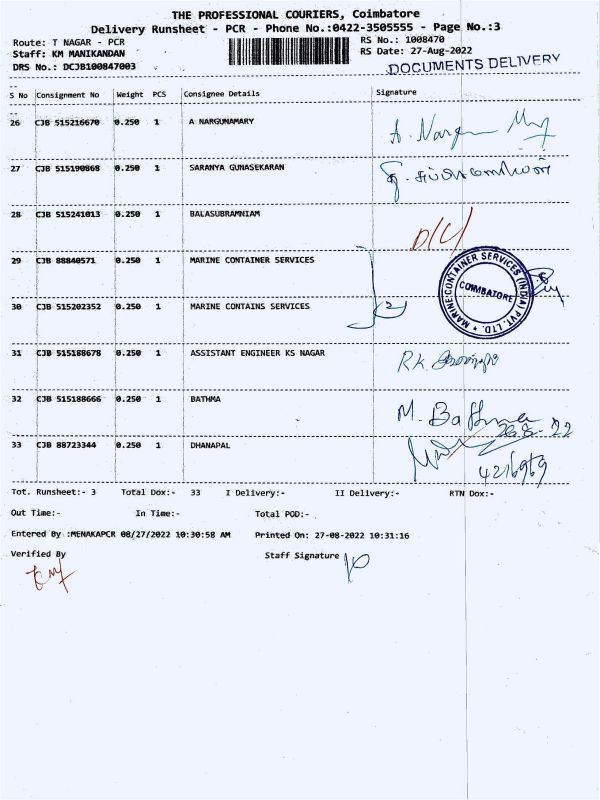 THE PROFESSIONAL COURIERS, Coimbatore
Delivery Runsheet - PCR - Phone No.:0422-3505555 - Page No.:3
Route: T NAGAR - PCR
RS No.: 1008470
Staff: KM MANIKANDAN
RS Date: 27-Aug-2022
DRS No.: DCJB100847003
DOCUMENTS DELIVERY
S No Consignment No Weight PCS Consignee Details Signature
26 CJB 515216670 0.250 1 A NARGUNAMARY A. Nargu
27 CJB 515190868 0.250 1 SARANYA GUNASEKARAN
28 CJB 515241013 0.250 1 BALASUBRAMNIAM D/C/
29 CJB 88840571 0.250 1 MARINE CONTAINER SERVICES
MARINE CONTAINER SERVICES (INDIA) PVT. LTD. * COIMBATORE
30 CJB 515202352 0.250 1 MARINE CONTAINS SERVICES 2
31 CJB 515188678 0.250 1 ASSISTANT ENGINEER KS NAGAR R.K.
32 CJB 515188666 0.250 1 BATHMA M. Bathma
26-8-22
33 CJB 88723344 0.250 1 DHANAPAL
4216969
Tot. Runsheet:- 3 Total Dox:- 33 I Delivery:- II Delivery:- RTN Dox:-
Out Time:- In Time:- Total POD:-
Entered By :MENAKAPCR 08/27/2022 10:30:58 AM Printed On: 27-08-2022 10:31:16
Verified By Staff Signature